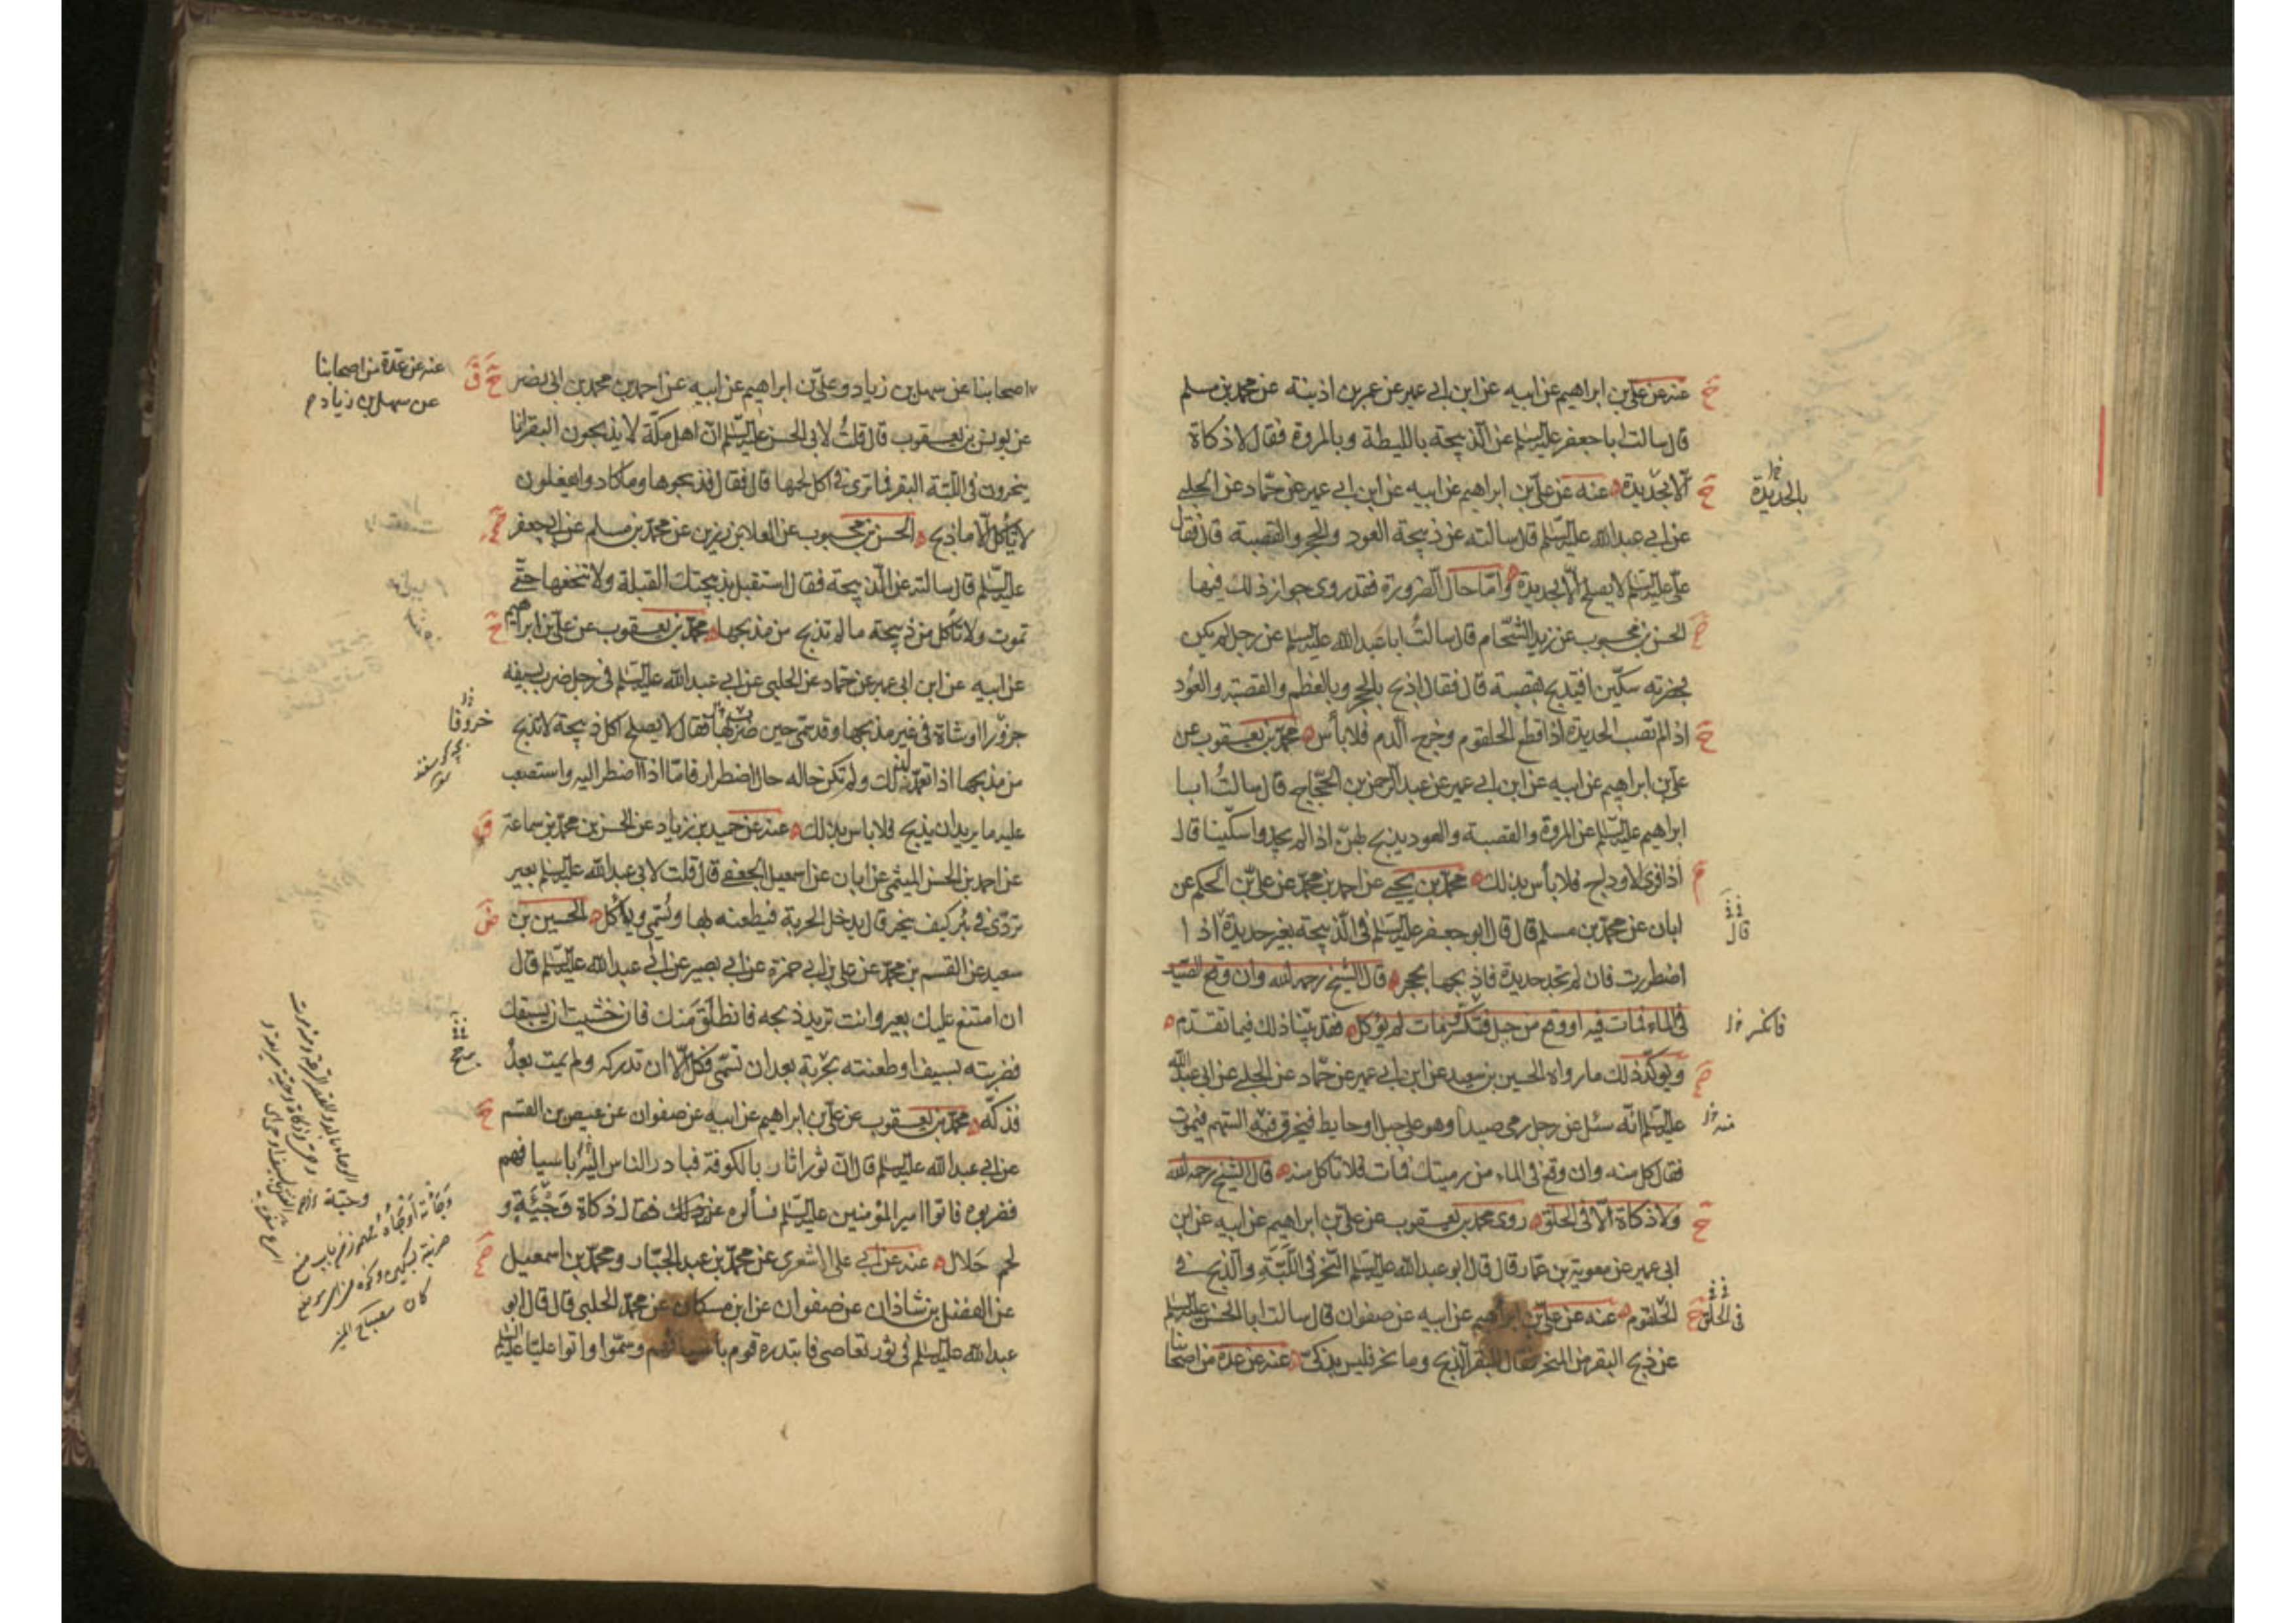 عنه عن علي بن ابراهيم عن ابيه عن ابن ابي عمير عن عمر بن اذينة عن محمد بن مسلم
قال سالت ابا جعفر عليه السلم عن الذبيحة بالليطة وبالمروة فقال لا ذكاة
الا بحديدة عنه عن علي بن ابراهيم عن ابيه عن ابن ابي عمير عن حماد عن الحلبي
بالحديدة
عن ابي عبد الله عليه السلم قال سالته عن ذبيحة العود والحجر والقصبة قال فقال
علي عليه السلم لا يصلح الا بحديدة واما حال الضرورة فقد روى جواز ذلك فيها
الحسن بن محبوب عن زيد الشحام قال سالت ابا عبد الله عليه السلم عن رجل لم يكن
بحضرته سكين افيذبح بقصبة قال فقال اذبح بالحجر وبالعظم والقصبة والعود
اذا لم تصب الحديدة اذا قطع الحلقوم وخرج الدم فلا بأس محمد بن يعقوب عن
علي بن ابراهيم عن ابيه عن ابن ابي عمير عن عبد الرحمن بن الحجاج قال سالت ابا
ابراهيم عليه السلم عن المروة والقصبة والعود يذبح بهن اذا لم يجدوا سكينا قال
اذا فرى الاوداج فلا بأس بذلك محمد بن يحيى عن احمد بن محمد عن علي بن الحكم عن
ابان عن محمد بن مسلم قال قال ابو جعفر عليه السلم في الذبيحة بغير حديدة اذا
قال
اضطررت فان لم تجد حديدة فاذبحها بحجر قال الشيخ رحمه الله وان وقع الصيد
في الماء فمات فيه او وقع من جبل فتكسر فمات لم يؤكل فقد بينا ذلك فيما تقدم
فانكسر
ويؤكد ذلك ما رواه الحسين بن سعيد عن ابن ابي عمير عن حماد عن الحلبي عن ابي عبد الله
عليه السلم انه سئل عن رجل رمى صيدا وهو على جبل او حايط فيخرق فيه السهم فيموت
منه
فقال كل منه وان وقع في الماء من رميتك فمات فلا تاكل منه قال الشيخ رحمه الله
ولا ذكاة الا في الحلق روى محمد بن يعقوب عن علي بن ابراهيم عن ابيه عن ابن
ابي عمير عن معوية بن عمار قال قال ابو عبد الله عليه السلم النحر في اللبة والذبح في
الحلقوم عنه عن علي بن ابراهيم عن ابيه عن صفوان قال سالت ابا الحسن عليه السلم
في الحلق
عن ذبح البقر من المنحر فقال للبقر الذبح وما نحر فليس بذكي عنه عن عدة من اصحابنا
اصحابنا عن سهل بن زياد وعلي بن ابراهيم عن ابيه عن احمد بن محمد بن ابي نصر
عنه عن عدة من اصحابنا
عن سهل بن زياد م
عن يونس بن يعقوب قال قلت لابي الحسن عليه السلم ان اهل مكة لا يذبحون البقر انما
ينحرون في اللبة البقر فما ترى في اكل لحمها قال فقال فذبحوها وما كادوا يفعلون
لا تأكل الا ما ذبح الحسن بن محبوب عن العلا بن رزين عن محمد بن مسلم عن ابي جعفر
عليه السلم قال سالته عن الذبيحة فقال استقبل بذبيحتك القبلة ولا تنخعها حتى
تموت ولا تأكل من ذبيحة ما لم تذبح من مذبحها محمد بن يعقوب عن علي بن ابراهيم
عن ابيه عن ابن ابي عمير عن حماد عن الحلبي عن ابي عبد الله عليه السلم في رجل ضرب بسيفه
جزورا او شاة في غير مذبحها وقد سمى حين ضرب بها فقال لا يصلح اكل ذبيحة لا تذبح
خروفا
من مذبحها اذا تعمد لذلك ولم تكن حاله حال اضطرار فاما اذا اضطر اليه واستصعب
عليه ما يريد ان يذبح فلا باس بذلك عنه عن حميد بن زياد عن الحسن بن محمد بن سماعة
عن احمد بن الحسن الميثمي عن ابان عن اسمعيل الجعفي قال قلت لابي عبد الله عليه السلم بعير
تردى في بئر كيف ينحر قال يدخل الحربة فيطعنه بها ويسمي ويأكل الحسين بن
سعيد عن القسم بن محمد عن علي بن ابي حمزة عن ابي بصير عن ابي عبد الله عليه السلم قال
ان امتنع عليك بعير وانت تريد ذبحه فانطلق منك فان خشيت ان يسبقك
فضربته بسيف او طعنته بحربة بعد ان تسمي فكل الا ان تدركه ولم يمت بعد
فذكه محمد بن يعقوب عن علي بن ابراهيم عن ابيه عن صفوان عن عيص بن القسم
عن ابي عبد الله عليه السلم قال ان ثورا ثار بالكوفة فبادر الناس اليه باسيافهم
فضربوه فاتوا امير المؤمنين عليه السلم فسألوه عن ذلك فقال ذكاة وجيئة و
لحم حلال عنه عن ابي علي الاشعري عن محمد بن عبد الجبار ومحمد بن اسمعيل
عن الفضل بن شاذان عن صفوان عن ابن مسكان عن محمد الحلبي قال قال ابو
عبد الله عليه السلم في ثور تعاصى فابتدره قوم باسيافهم وسموا واتوا عليا عليه السلم